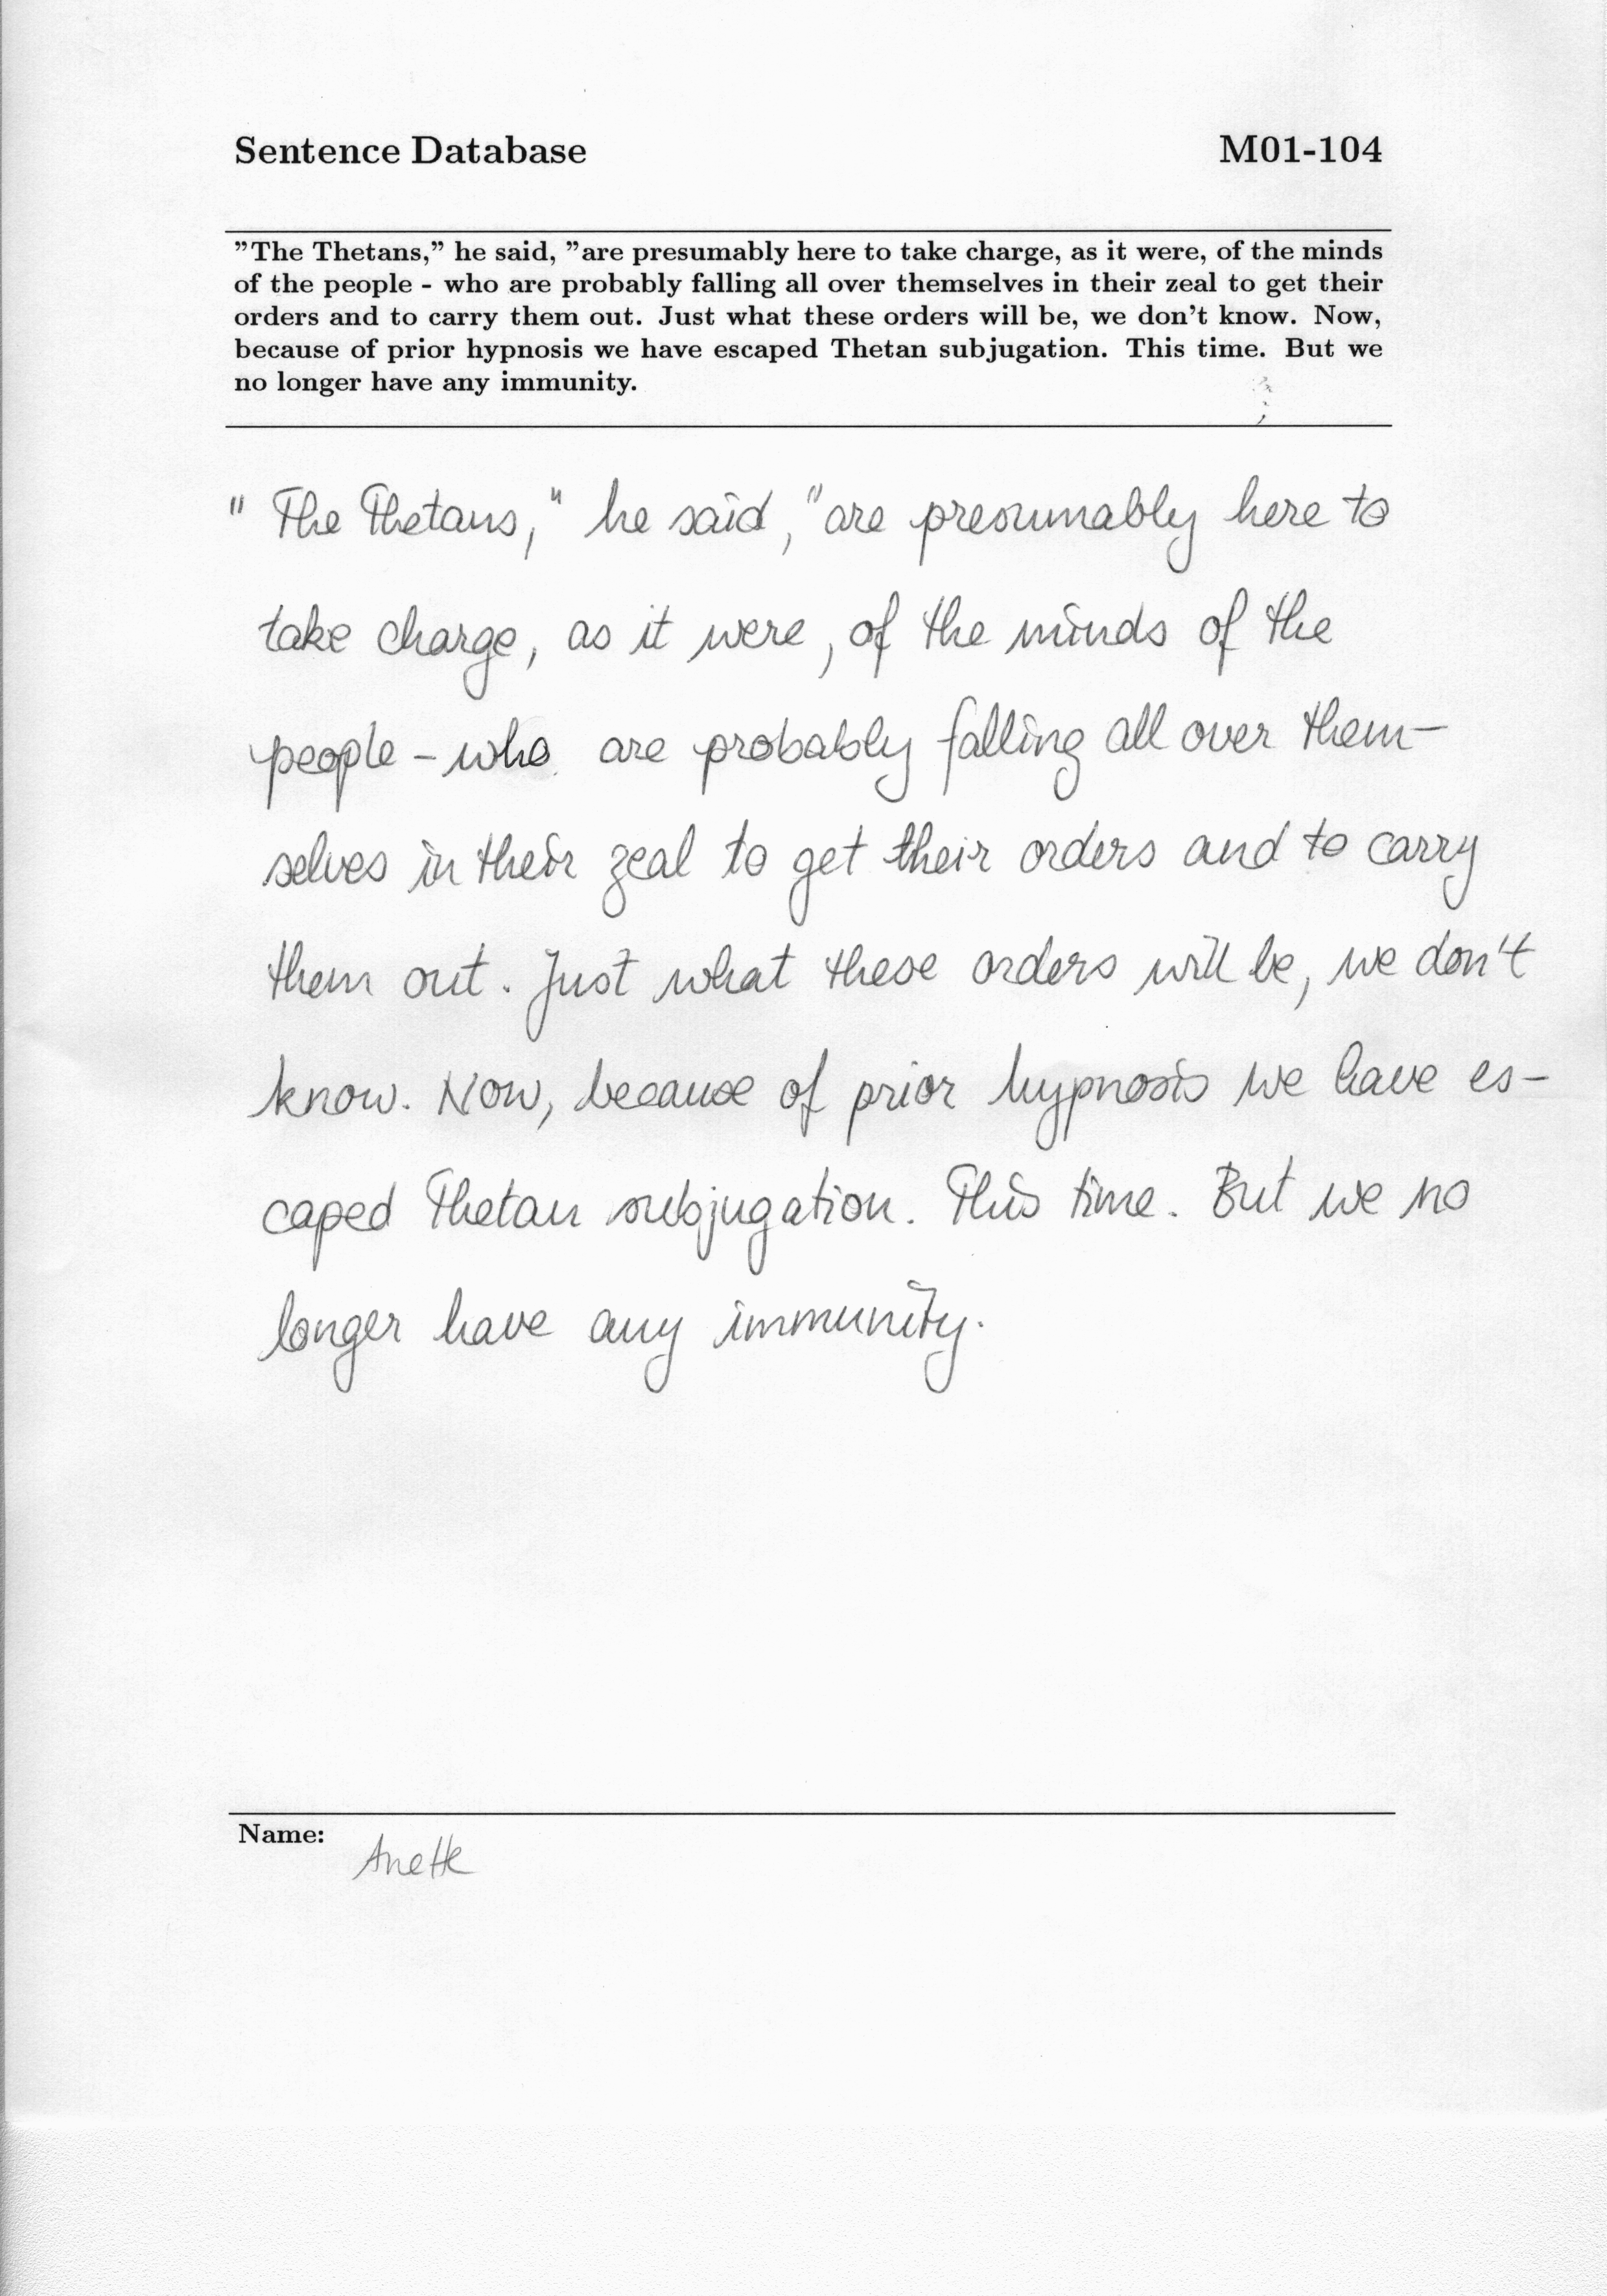 Sentence Database M01-104
"The Thetans," he said, "are presumably here to take charge, as it were, of the minds
of the people - who are probably falling all over themselves in their zeal to get their
orders and to carry them out. Just what these orders will be, we don't know. Now,
because of prior hypnosis we have escaped Thetan subjugation. This time. But we
no longer have any immunity.
" The Thetans," he said, "are presumably here to
take charge, as it were, of the minds of the
people - who are probably falling all over them-
selves in their zeal to get their orders and to carry
them out. Just what these orders will be, we don't
know. Now, because of prior hypnosis we have es-
caped Thetan subjugation. This time. But we no
longer have any immunity.
Name:
Anette